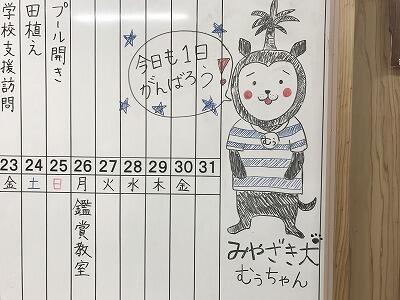 学校支援訪問
田植え
プール開き
今日も1日
がんばろう!
むぅ
23 24 25 26 27 28 29 30 31
金 土 日 月 火 水 木 金
鑑賞教室
みやざき犬
むぅちゃん